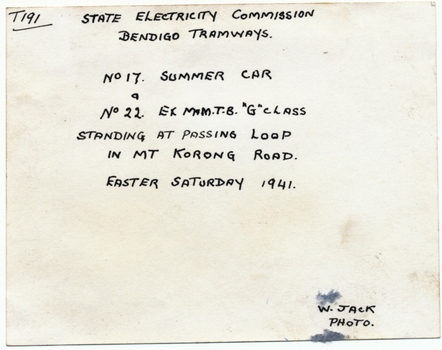 T191
STATE ELECTRICITY COMMISSION
BENDIGO TRAMWAYS.
No 17. SUMMER CAR
&
No 22. EX M&M.T.B. "G" CLASS
STANDING AT PASSING LOOP
IN MT KORONG ROAD.
EASTER SATURDAY 1941.
W. JACK
PHOTO.